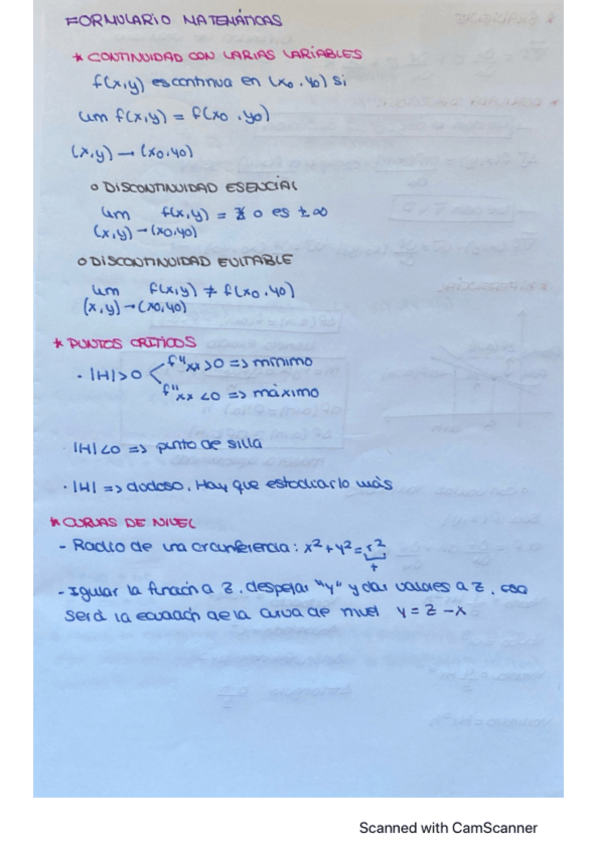 FORMULARIO MATEMÁTICAS
* CONTINUIDAD CON VARIAS VARIABLES
f(x,y) es continua en (x0,y0) si
lim f(x,y) = f(x0,y0)
(x,y) → (x0,y0)
o DISCONTINUIDAD ESENCIAL
lim f(x,y) = ∄ o es ±∞
(x,y) → (x0,y0)
o DISCONTINUIDAD EVITABLE
lim f(x,y) ≠ f(x0,y0)
(x,y) → (x0,y0)
* PUNTOS CRITICOS
f''xx >0 => mínimo
· |H|>0
f''xx <0 => máximo
· |H|<0 => punto de silla
· |H| => dudoso. Hay que estudiarlo más
* CURVAS DE NIVEL
- Radio de una circunferencia: x²+y²=r²
r
- Igualar la función a z, despejar "y" y dar valores a z, esa
será la ecuación de la curva de nivel y = z - x
Scanned with CamScanner